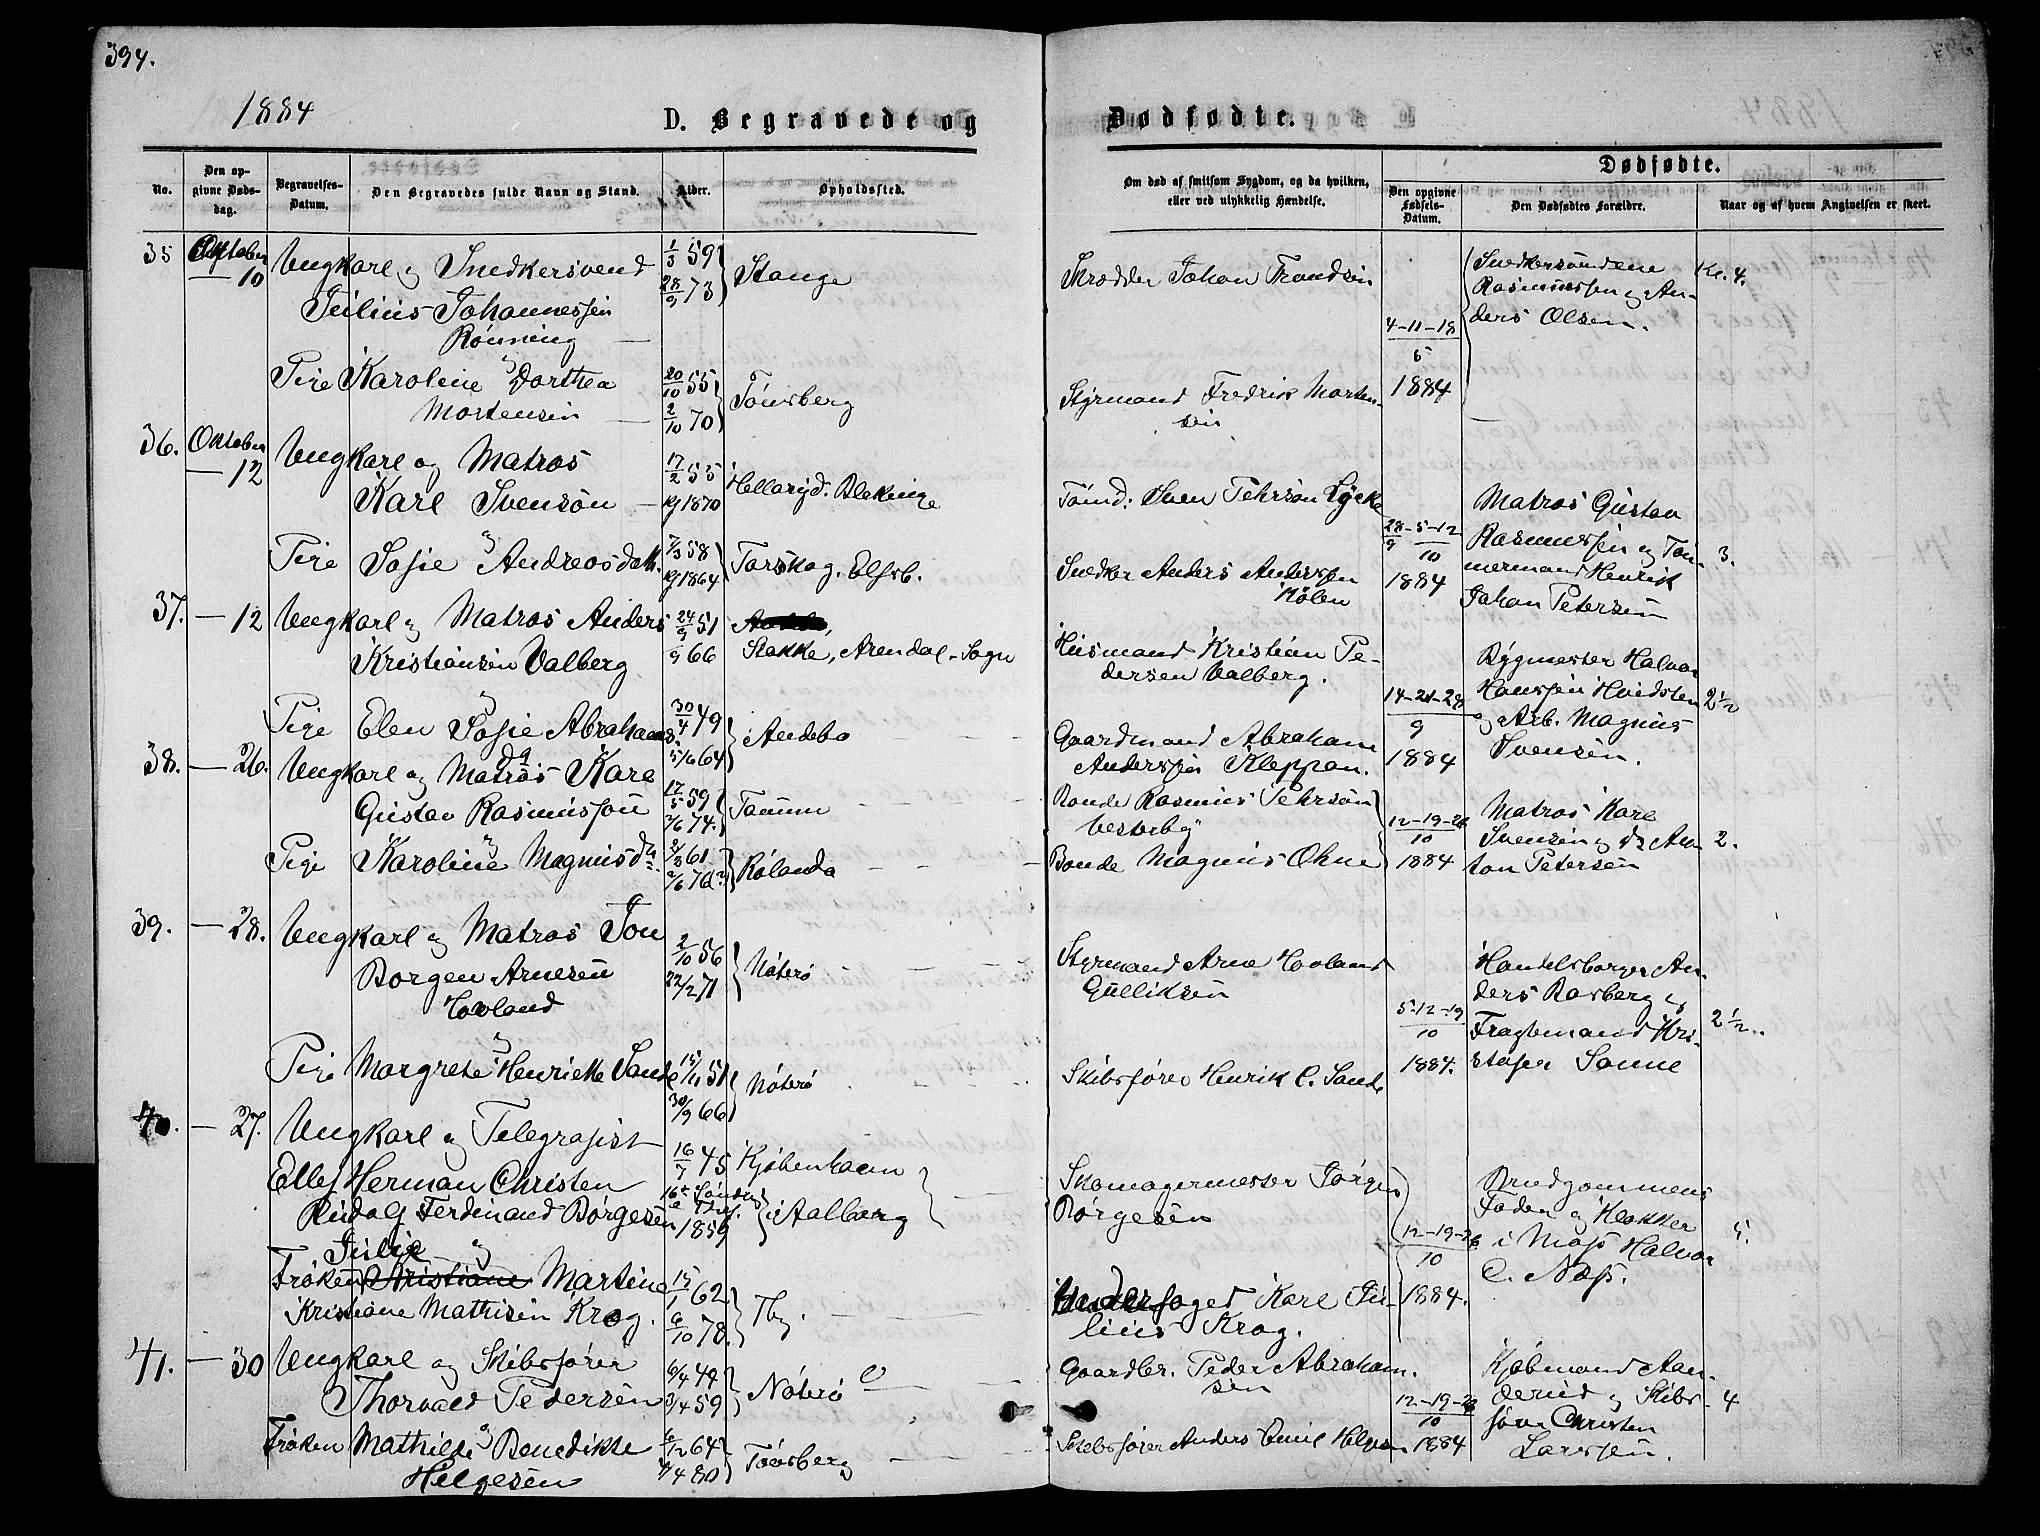 394.
1884
D. Begravede og
Dødfødte.
No.
Den op-
givne Døds-
dag.
Begravelses-
Datum.
Den Begravedes fulde Navn og Stand.
Alder.
Opholdssted.
Om død af smitsom Sygdom, og da hvilken,
eller ved ulykkelig Hændelse.
Dødfødte.
Den opgivne
Fødsels-
Datum.
Den Dødfødtes Forældre.
Naar og af hvem Angivelsen er skeet.
35 Oktober
— 10
Ungkarl og Snedkersvend
Julius Johannessen
Rønning —
1/3 59
28/9 73
Stange
Skrædder Johan Frandsen
4-11-18
5
1884
Snedkersvendene
Rasmussen og An-
ders Olsen.
Kl. 4.
Pige Karoline Dorthea og
Mortensen —
20/10 55
2/10 70
Tønsberg
Styrmand Fredrik Morten-
sen
36. Oktober
— 12
Ungkarl og Matros
Karl Svensøn —
17/2 55
kg 1870
Hellaryd. Blekinge
Tømd: Sven Pehrsøn Lycke
28-5-12
9 10
1884
Matros Gustav
Rasmussen og Töm-
mermand Henrik
Johan Petersen
3.
Pige Sofie og Andreasdatt.
7/3 58
kg 1864
Torskog. Elfsb.
Snedker Anders Anderssen
Kølen
37. — 12 Ungkarl og Matros Anders
Kristiansen Valberg
24/9 51
9 66
Stokke, Arendal-Sogn
Husmand Kristian Pe-
dersen Valberg.
14-21-28
9
1884
Bygmester Halvor
Hanssen Hvidsten
og Arb. Magnus
Svensen.
2 1/2
Pige Elen og Sofie Abrahams
da
30/4 49
5/6 64
i Andebo
Gaardmand Abraham
Anderssen Kleppan.
38. — 26. Ungkarl og Matros Karl
Gustav Rasmusson
17/5 59
2/6 74.
Tanum
Bonde Rasmus Pehrsøn
Vesterby
12-19-26
10
1884
Matros Karl
Svensen og do An-
ton Petersen
2.
Pige Karoline og Magnusdtr
8/8 61
2/6 76?
Rølanda
Bonde Magnus Ohne
39. — 28. Ungkarl og Matros Jon
Borgen Arnesen
Hovland
2/10 56
22/2 71
Nøterø
Styrmand Arne Hovland
Gulliksen
5-12-19
10
1884.
Handelsborger An-
ders Rosberg og
Fragtmand Kri-
stofer Sonne
2 1/2.
Pige Margrete og Henrikke Sande
15/11 51
30/9 66
Nøterø
Skibsfører Henrik C. Sande
40. — 27. Ungkarl og Telegrafist
Ellef Herman Christen
Rudolf Ferdinand Børgesen
16/7 45
16de Sönda
e Tref.
1859
Kjøbenhavn
i Aalborg
Skomagermester Jørgen
Børgesen
12-19-26
10
1884.
Brudgommens
Fader og Klokker
i Moss Halvor
C. Næss.
Julie og
Frøken Kristiane Martine
Kristiane Mathisen Krog.
15/1 62
6/10 78.
Tby.
Underfoged Karl Ju-
lius Krog.
41. — 30 Ungkarl og Skibsfører
Thorvald Pedersen
6/4 44
3/4 59
Nøterø
Gaardbr. Peder Abraham-
sen
12-19-26
10
1884
Kjøbmand Aan-
derud og Skibs-
fører Christen
Larssen.
4
Frøken Mathilde og Benedikte
Helgesen
6/12 64
4/4 80
Tønsberg
Skibsfører Anders Emil Helgesen